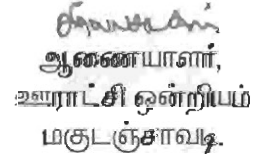 ஆணையாளர்,
ஊராட்சி ஒன்றியம்
மகுடஞ்சாவடி.